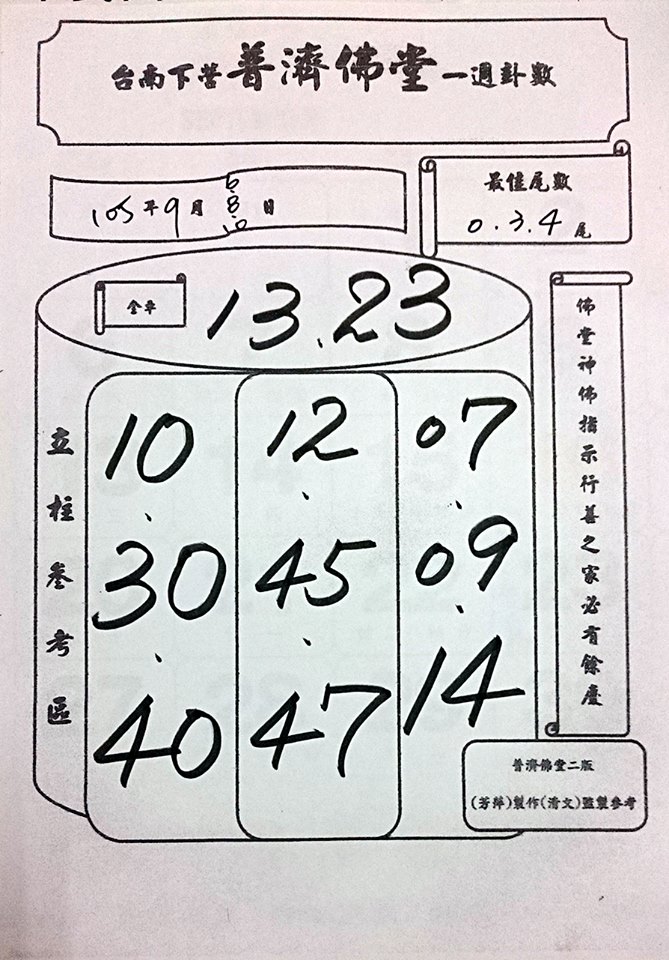 台南下營普濟佛堂一週卦數
105年9月6.8.10日
最佳尾數
0.3.4尾
全車
13.23
立柱叄考區
10、30、40
12、45、47
07、09、14
佛堂神佛指示行善之家必有餘慶
普濟佛堂二版
(芳萍)製作(清文)監製參考